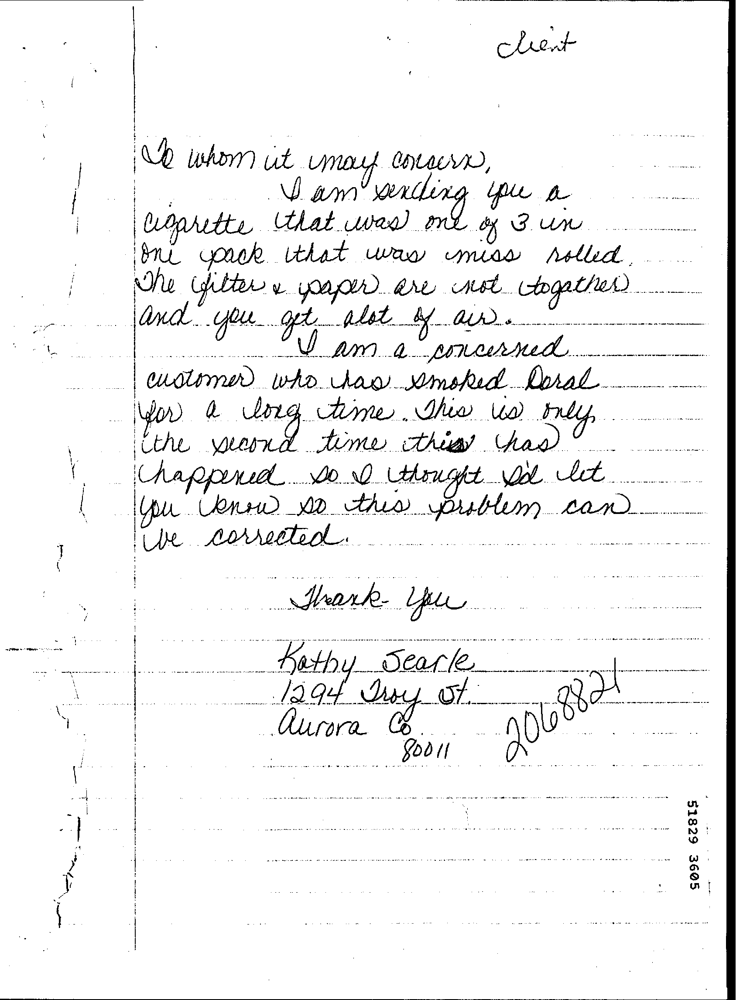 client
To whom it may concern,
I am sending you a
cigarette that was one of 3 in
one pack that was miss rolled.
The filter & paper are not togather
and you get alot of air.
I am a concerned
customer who has smoked Doral
for a long time. This is only
the second time this has
happened so I thought I'd let
you know so this problem can
be corrected.
Thank You
Kathy Searle
1294 Troy St.
Aurora Co
80011
2068821
51829 3605